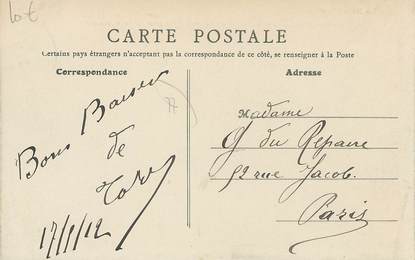 Lot
CARTE POSTALE
Certains pays étrangers n'acceptant pas la correspondance de ce côté, se renseigner à la Poste
Correspondance
Adresse
Bons Baisers
de
17/1/12
Madame
G du Repaire
52 rue Jacob.
Paris